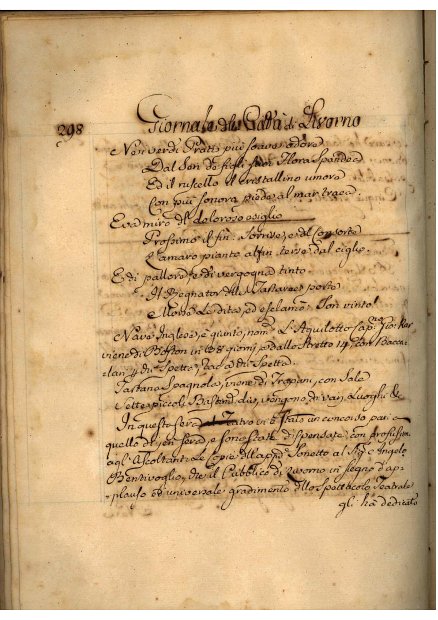 298
Giornale della Città di Livorno
Ne' verdi Prati più soave odore
Dal Sen de figli suoi Flora Spandea
Ed il ruscello il cristallino umore
Con più sonoro piede al mar traea.
Eva mirò del doloroso esiglio
Prossimo il fin: Sorrise, e del consorte
L'amaro pianto alfin terse dal ciglio.
E di pallore, e di vergogna tinto
Il Regnator delle Tartaree porte
Morse le dita, ed esclamò: Son vinto!
Nave Inglese, è giunto, nom. L'Aquilotto Cap.
viene di Boston in giorni, e dallo Stretto 14, con Bacca-
lari
Tartana Spagnola, viene di Trapani, con Sale
Sette piccoli Bastim. due, vengono di varj Luoghi &
In questa sera al Teatro vi è stato un concorso pari a
quello di jeri Sera, e sono state dispensate, con profusione
agl'Ascoltanti Le Copie dell' Sonetto al Sig.e Angelo
Bentivoglio, che il Pubblico di Livorno in segno d'ap-
plauso ed universale gradimento dello Spettacolo Teatrale
gli ha dedicato